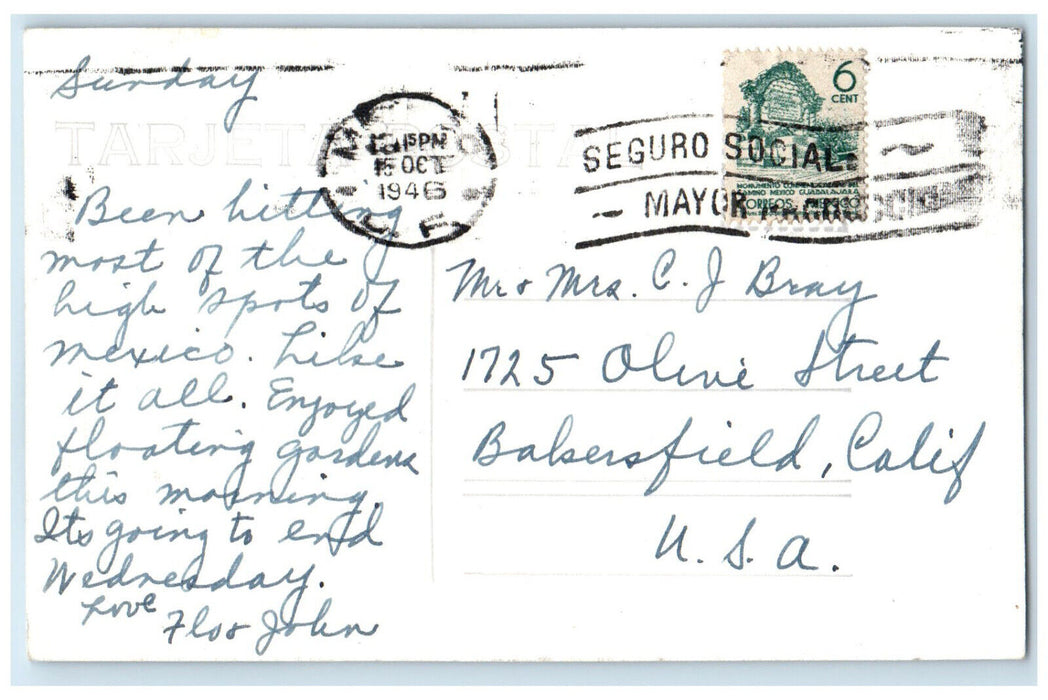 Sunday
TARJETA POSTAL
15 PM
15 OCT
1946
6
CENT
SEGURO SOCIAL
MAYOR
MONUMENTO
CAMINO MEXICO GUADALAJARA
CORREOS MEXICO
Been hitting
most of the
high spots of
Mexico. Like
it all. Enjoyed
floating gardens
this morning.
Its going to end
Wednesday.
Love
Flo & John
Mr & Mrs. C. J Bray
1725 Olive Street
Bakersfield, Calif
U. S. A.